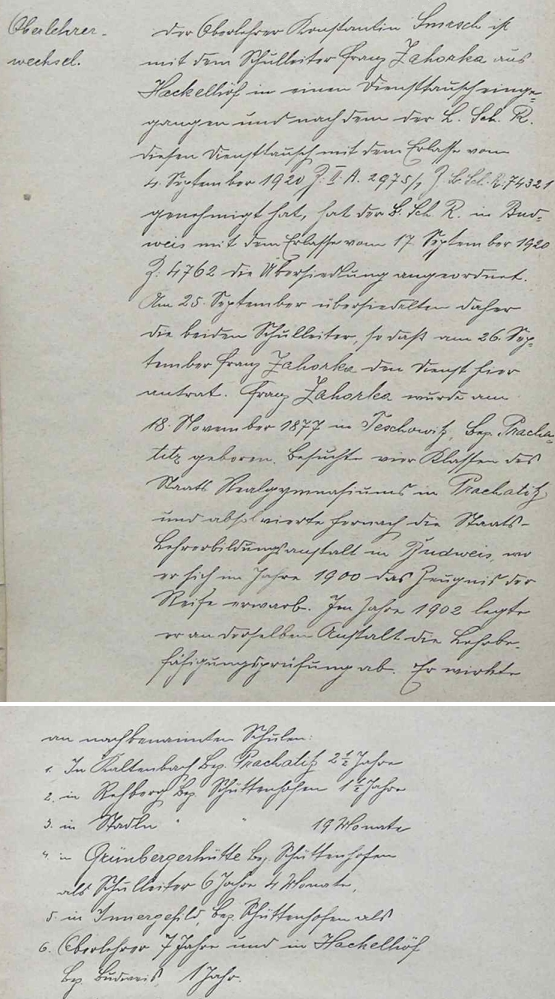 Oberlehrer-
wechsel.
Der Oberlehrer Konstantin Smesch ist
mit dem Schulleiter Franz Zahorka aus
Hackelhöf in einen Diensttausch einge-
gangen und nachdem der L. Sch. R.
diesen Diensttausch mit dem Erlasse vom
4. September 1920 Z: II. A. 2975/1 Z. L. Sch. R. 74321
genehmigt hat, hat der B. Sch. R. in Bud-
weis mit dem Erlasse vom 17. September 1920
Z. 4762 die Übersiedlung angeordnet.
Am 25. September übersiedelten daher
die beiden Schulleiter, so daß am 26. Sep-
tember Franz Zahorka den Dienst hier
antrat. Franz Zahorka wurde am
18. November 1877 in Teschowitz, Bez. Pracha-
titz geboren. Besuchte vier Klassen des
Staats Realgymnasiums in Prachatitz
und absolvierte hernach die Staats-
Lehrerbildungsanstalt in Budweis, wo
er sich im Jahre 1900 das Zeugnis der
Reife erwarb. Im Jahre 1902 legte
er an derselben Anstalt die Lehrbe-
fähigungsprüfung ab. Er wirkte
an nachbenannten Schulen:
1. In Kaltenbach Bez. Prachatitz 2 1/2 Jahre
2. in Rehberg Bez. Schüttenhofen 1 1/2 Jahre
3. in Stadln " " 19 Monate
4. in Grünbergerhütte Bez. Schüttenhofen
als Schulleiter 6 Jahre 4 Monate,
5. in Innergefild, Bez. Schüttenhofen als
6. Oberlehrer 7 Jahre und in Hackelhöf
Bez. Budweis, 1 Jahr.